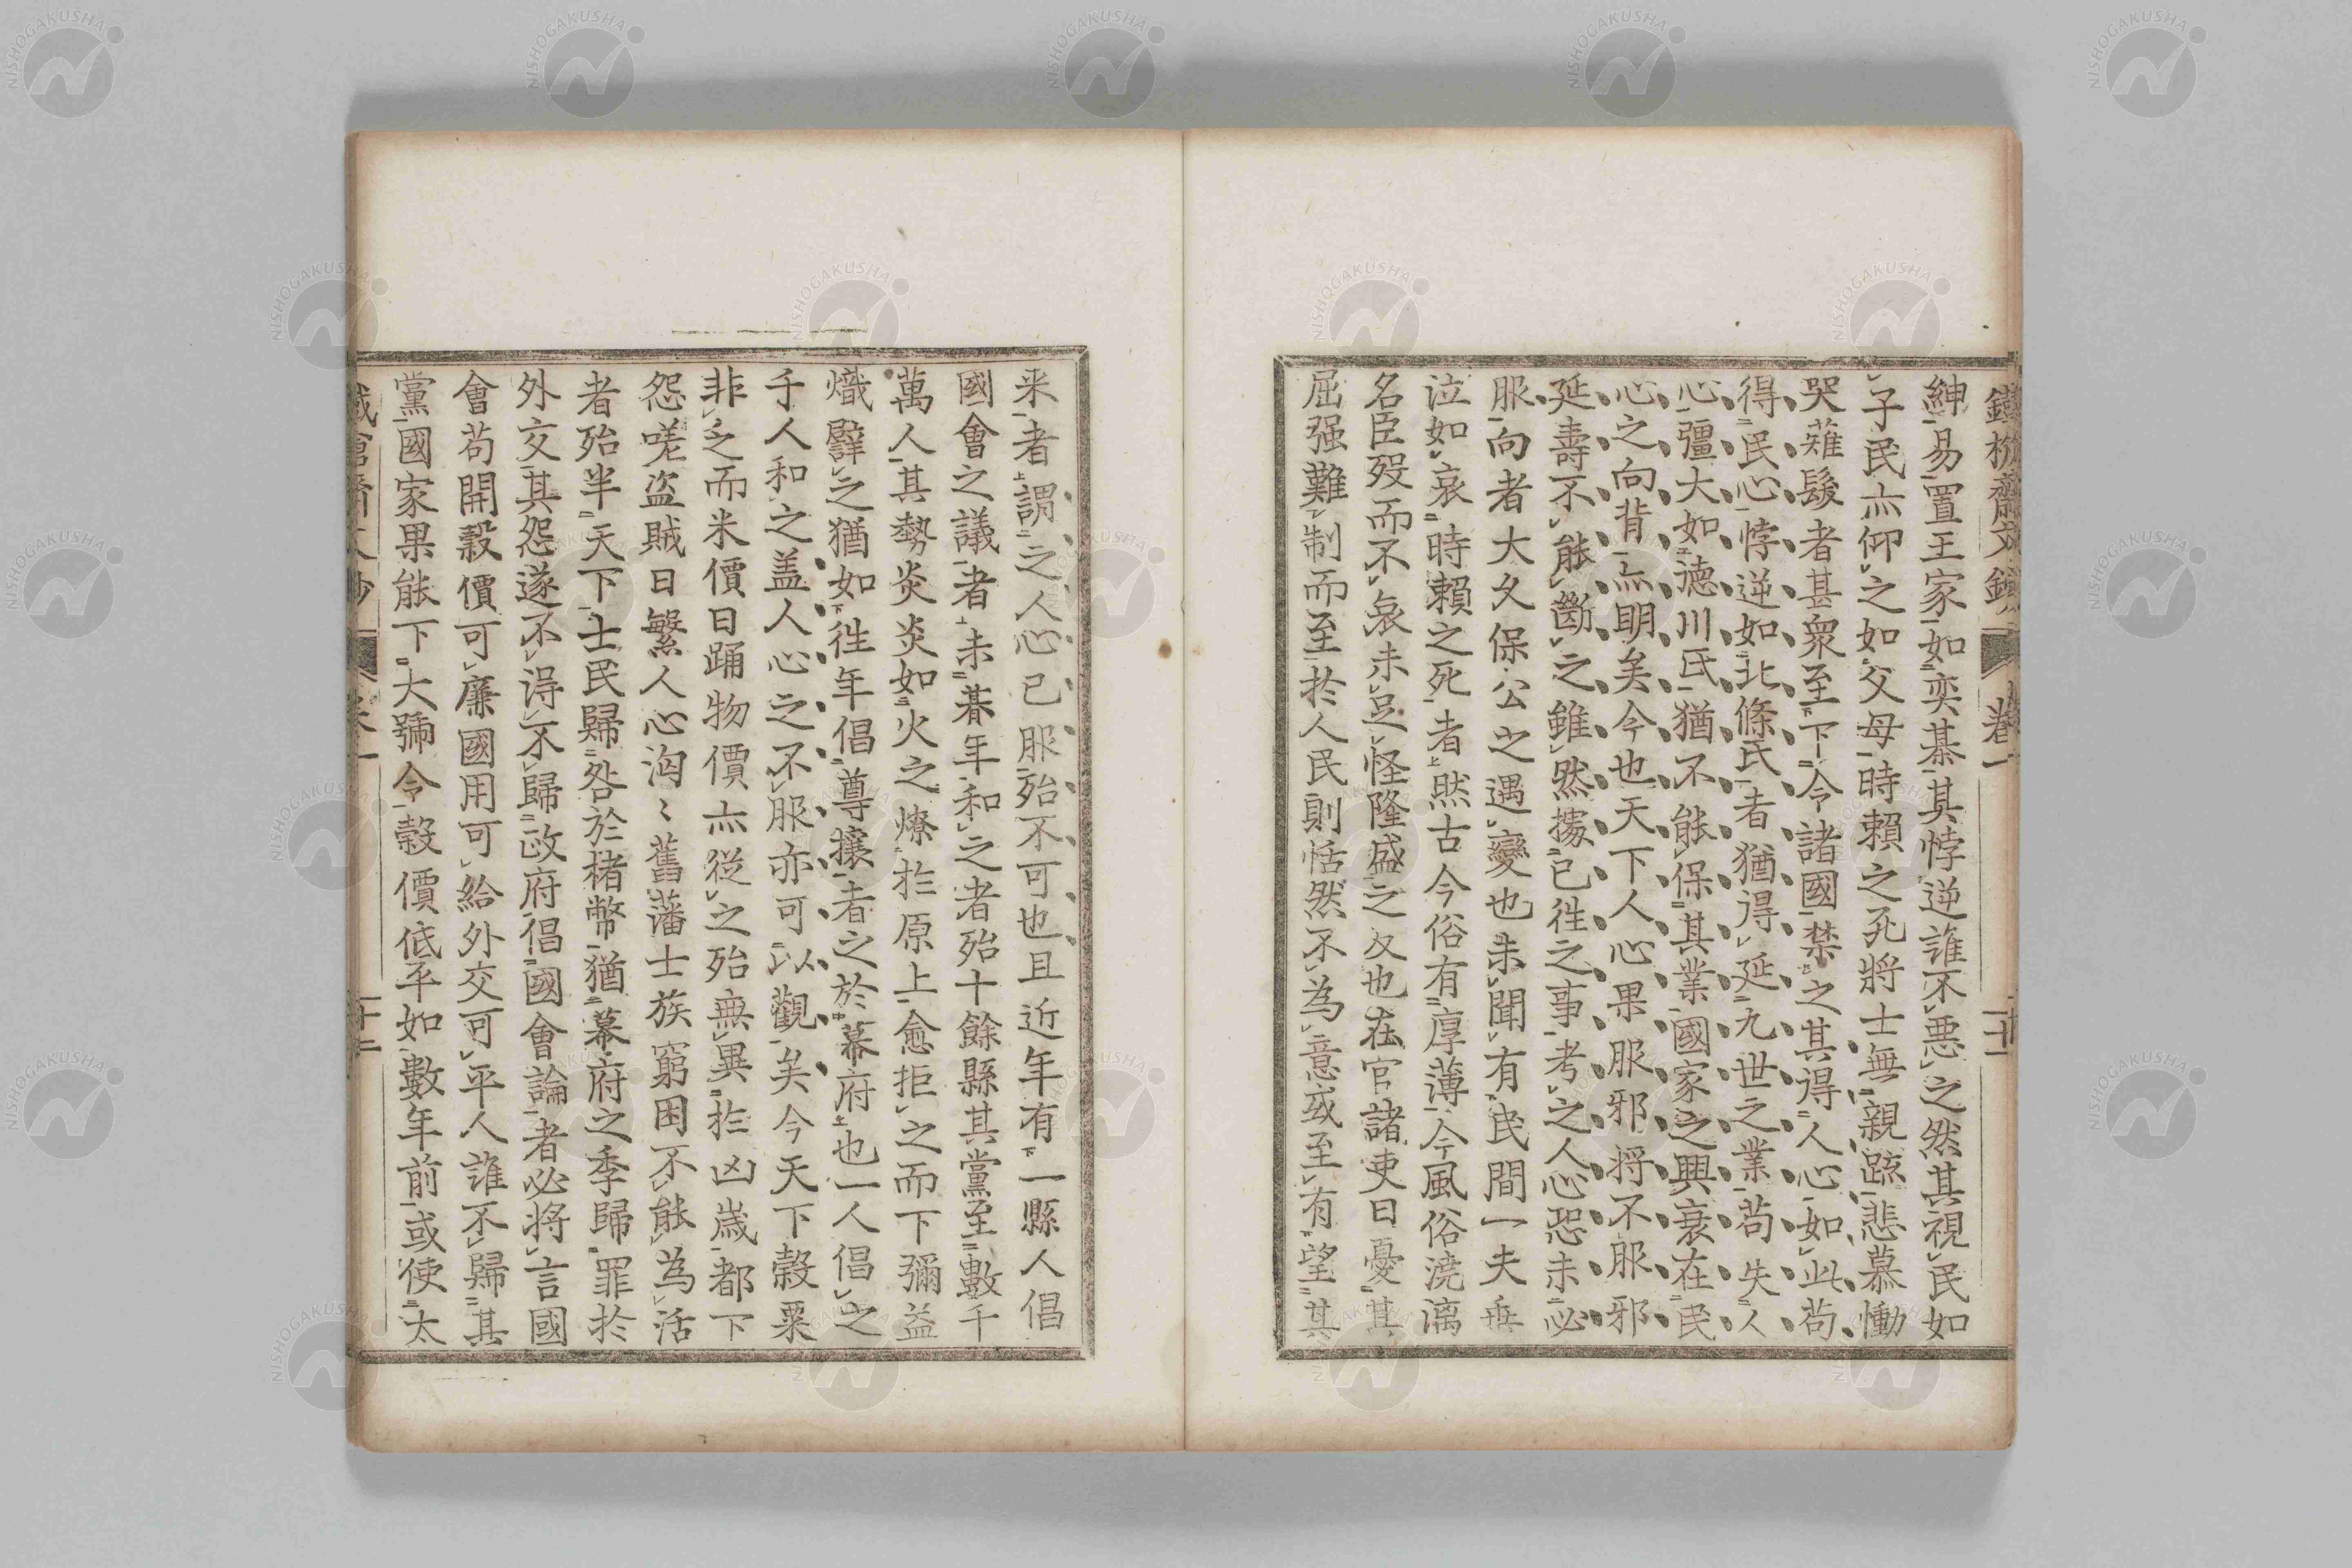 鐵槍齋文鈔 卷一 二十一
紳易置王家如奕棊其悖逆誰不惡之然其視民如
子民亦仰之如父母時賴之死將士無親疏悲慕慟
哭薙髮者甚衆至下令諸國禁之其得人心如此苟
得民心悖逆如北條氏者猶得延九世之業苟失人
心彊大如德川氏猶不能保其業國家之興衰在民
心之向背亦明矣今也天下人心果服邪將不服邪
延壽不能斷之雖然據已徃之事考之人心恐未必
服向者大久保公之遇變也未聞有民間一夫垂
泣如哀時賴之死者然古今俗有厚薄今風俗澆漓
名臣歿而不哀未足怪隆盛之久也在官諸吏日憂其
屈强難制而至於人民則恬然不為意或至有望其
来者謂之人心已服殆不可也且近年有一縣人倡
國會之議者未朞年和之者殆十餘縣其黨至數千
萬人其勢炎炎如火之燎於原上愈拒之而下彌益
熾譬之猶如徃年倡尊攘者之於幕府也一人倡之
千人和之盖人心之不服亦可以觀矣今天下穀粟
非乏而米價日踊物價亦從之殆無異於凶歲都下
怨嗟盗賊日繁人心洶〻舊藩士族窮困不能為活
者殆半天下士民歸咎於楮幣猶幕府之季歸罪於
外交其怨遂不得不歸政府倡國會論者必將言國
會苟開穀價可廉國用可給外交可平人誰不歸其
黨國家果能下大號令穀價低平如數年前或使太